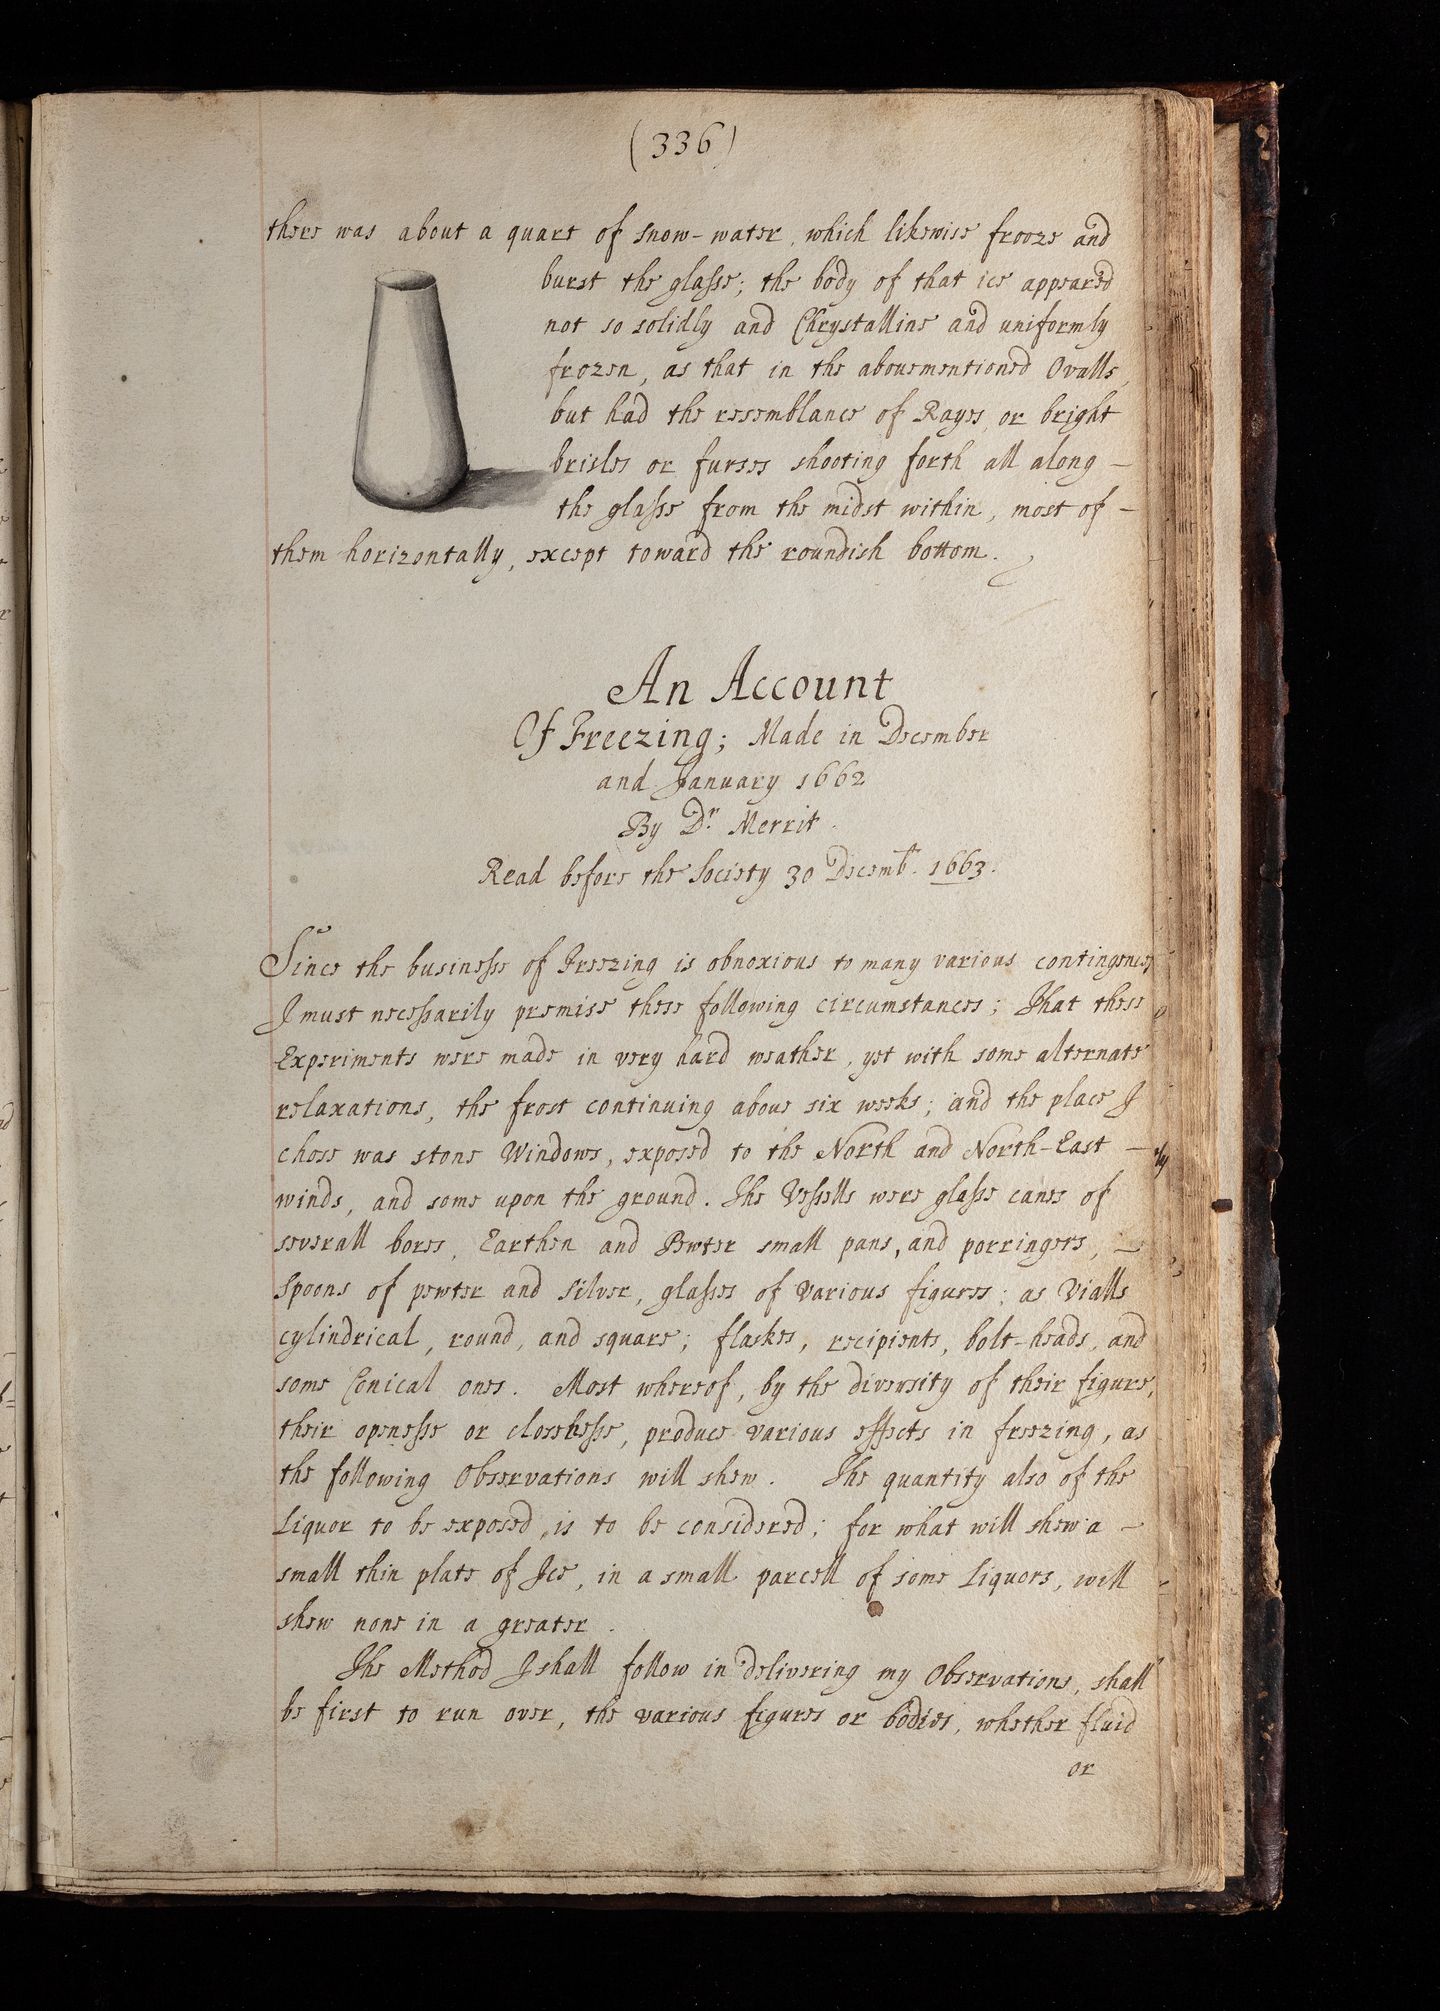 (336)
there was about a quart of snow-water, which likewise frooze and
burst the glasse; the body of that ice appeared
not so solidly and Chrystalline and uniformly
frozen, as that in the abouementioned Ovalls,
but had the resemblance of Rayes, or bright
brisles or furses shooting forth all along —
the glasse from the midst within, most of —
them horizontally, except toward the roundish bottom.
An Account
Of Freezing; Made in December
and January 1662
By Dr. Merrit.
Read before the Society 30 Decembr. 1663.
Since the businesse of Freezing is obnoxious to many various contingences
I must necessarily premise these following circumstances; That these
Experiments were made in very hard weather, yet with some alternate
relaxations, the frost continuing aboue six weeks; and the place I
chose was stone Windows, exposed to the North and North-East —
winds, and some upon the ground. The Vessells were glasse canes of
severall bores, Earthen and Pewter small pans, and porringers, —
Spoons of pewter and silver, glasses of various figures; as Vialls
cylindrical, round, and square; flaskes, recipients, bolt-heads, and
some Conical ones. Most whereof, by the diversity of their figure,
their openesse or closenesse, produce various effects in freezing, as
the following Observations will shew. The quantity also of the
Liquor to be exposed, is to be considered; for what will shew a —
small thin plate of Ice, in a small parcell of some Liquors, will
shew none in a greater.
The Method I shall follow in delivering my Observations, shall
be first to run over, the various figures or bodies, whether fluid
or